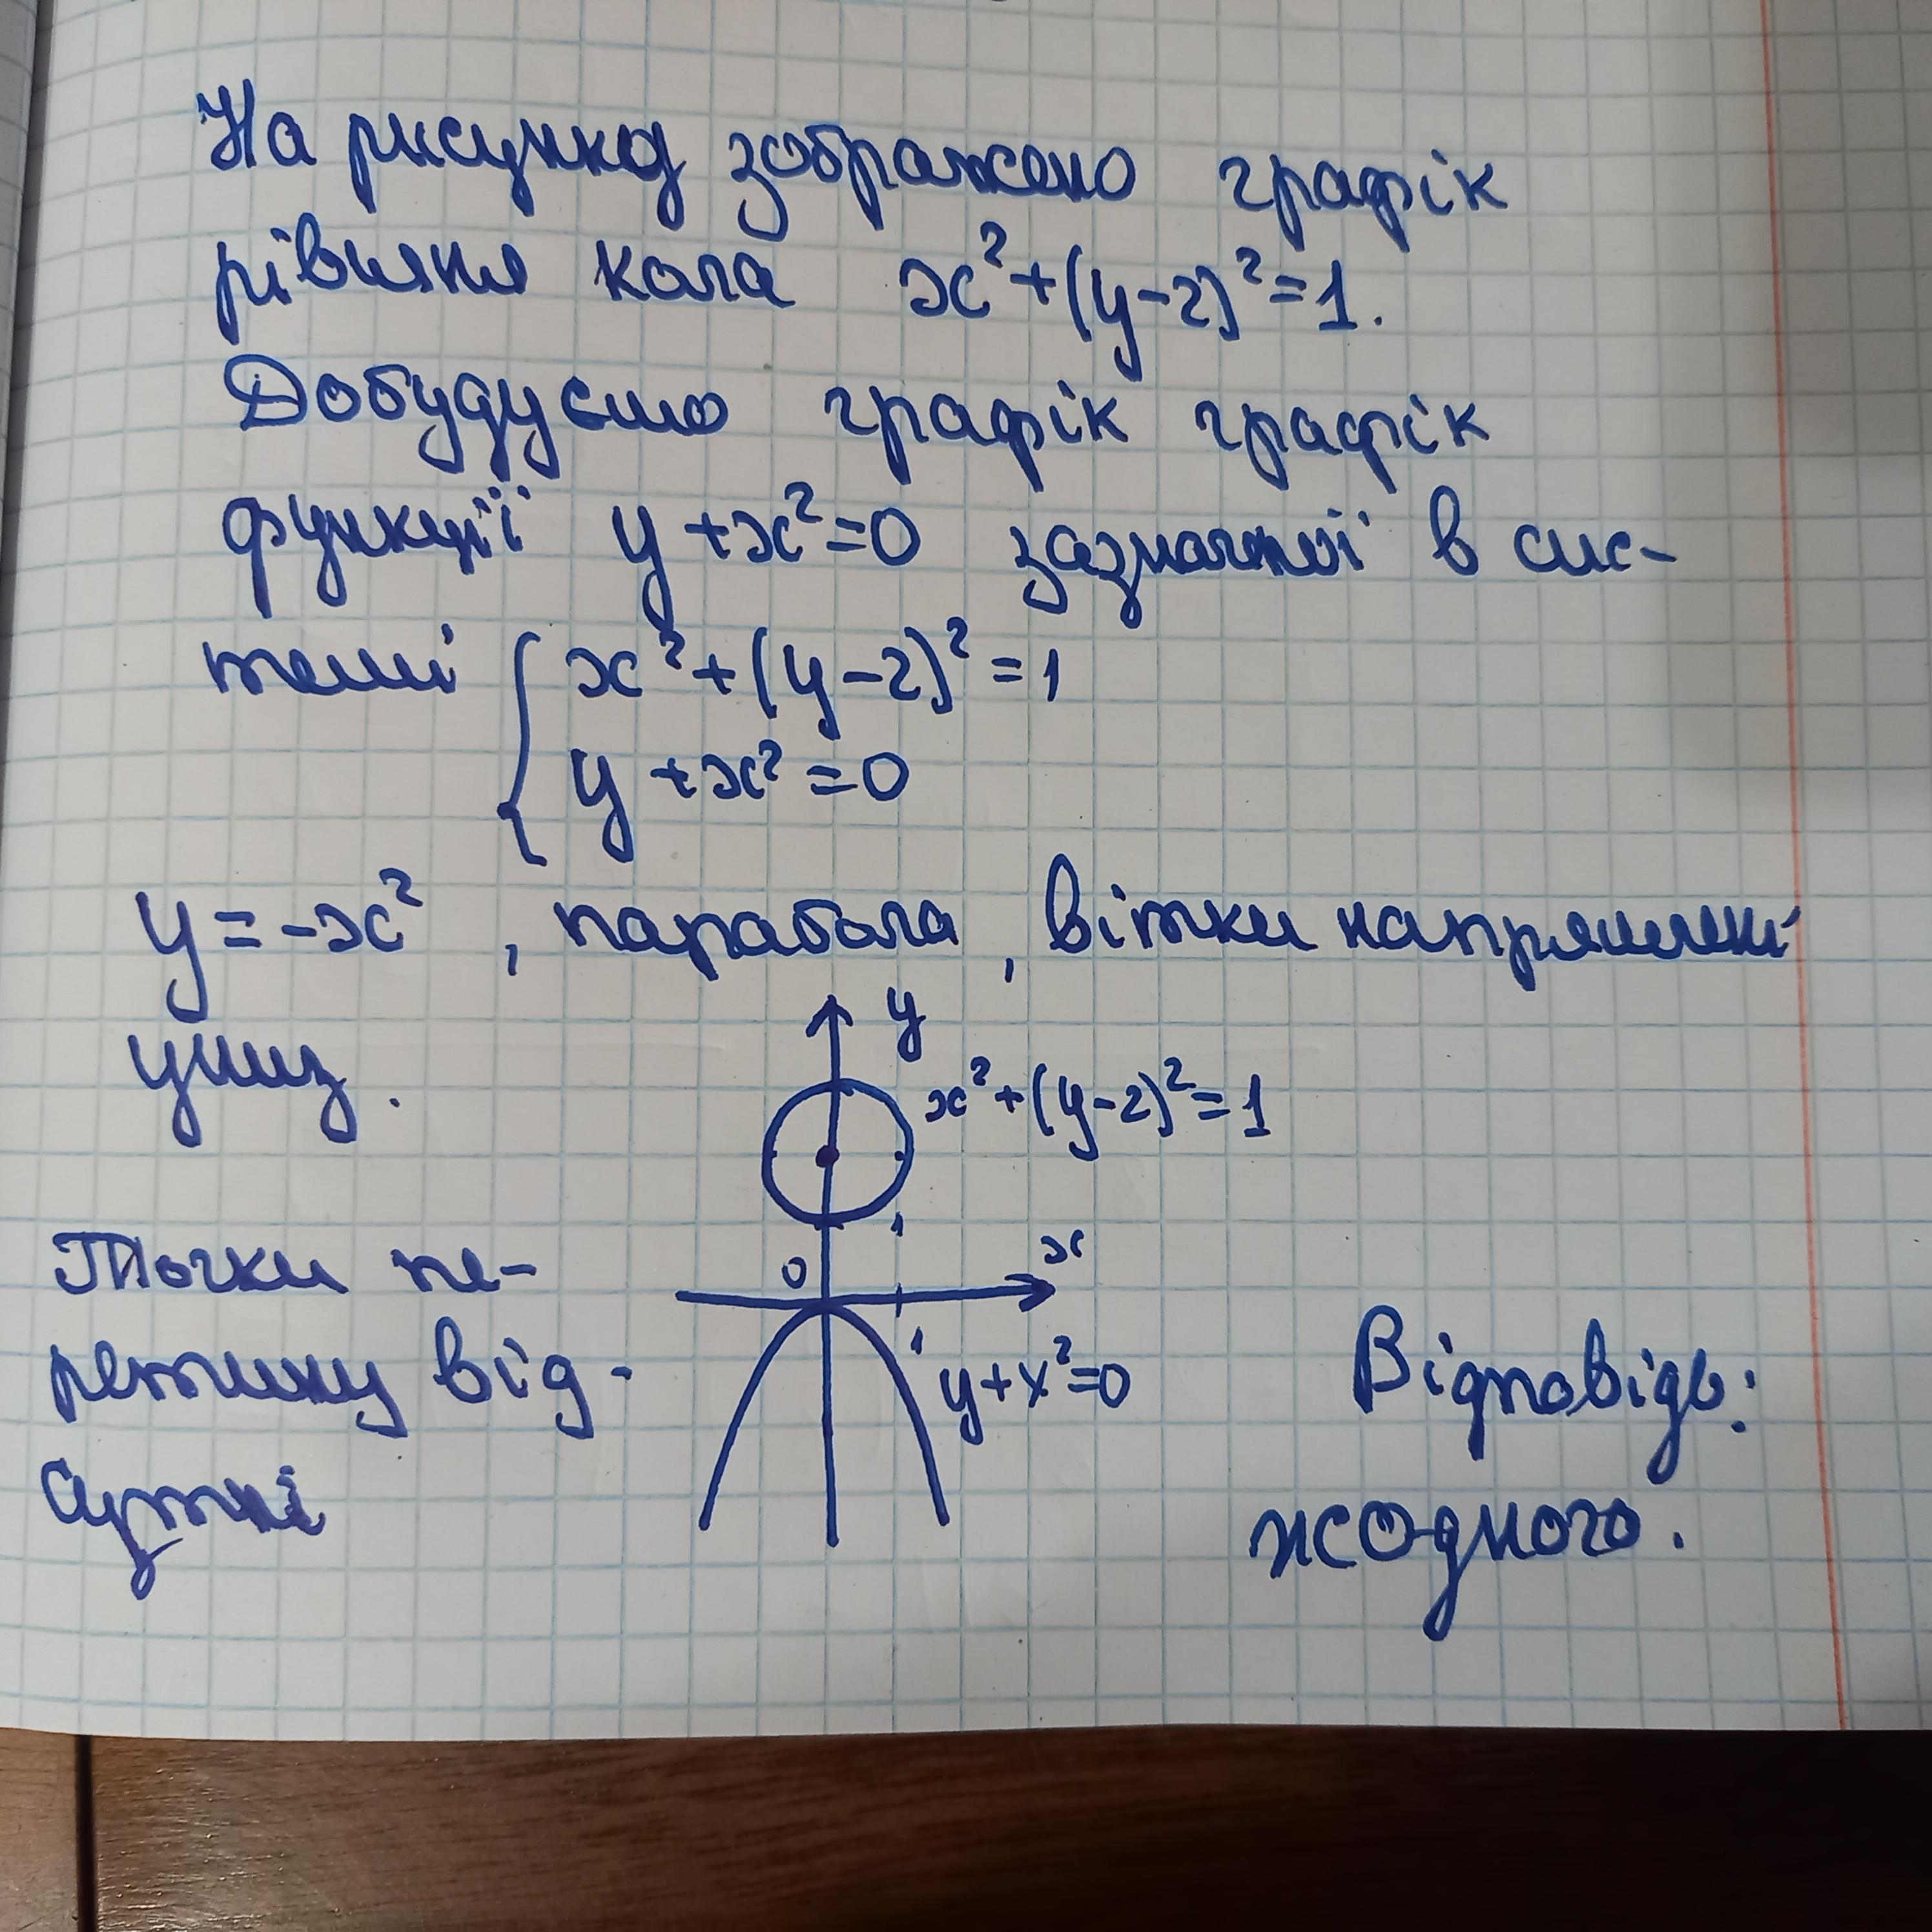 На рисунку зображено графік
рівняня кола x²+(y-2)²=1.
Добудуємо графік графік
функції y+x²=0 зазначеної в сис-
темі { x²+(y-2)²=1
y+x²=0
y=-x² , парабола, вітки напрямлені
униз.
y
x²+(y-2)²=1
1
x
0
1
y+x²=0
Точки пе-
ретину від-
сутні
Відповідь:
жодного.